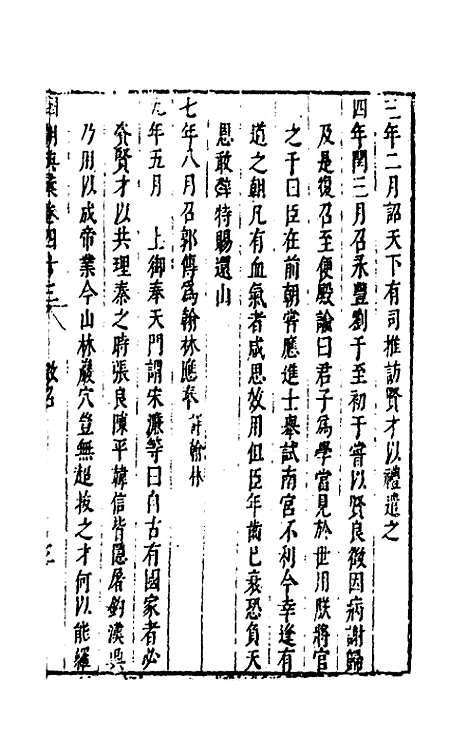 三年二月詔天下有司推訪賢才以禮遣之
四年閏三月召永豐劉于至初于嘗以賢良徵因病謝歸
及是復召至便殿諭曰君子為學當見於世用朕將官
之于曰臣在前朝嘗應進士舉試南宮不利今幸逢有
道之朝凡有血氣者咸思效用但臣年齒已衰恐負天
恩敢辭特賜還山
七年八月召郭傳為翰林應奉詳翰林
九年五月　上御奉天門謂宋濂等曰自古有國家者必
資賢才以共理秦之時張良陳平韓信皆隱屠釣漢興
乃用以成帝業今山林巖穴豈無超拔之才何以能羅
國朝典彙卷四十三　徵召　三